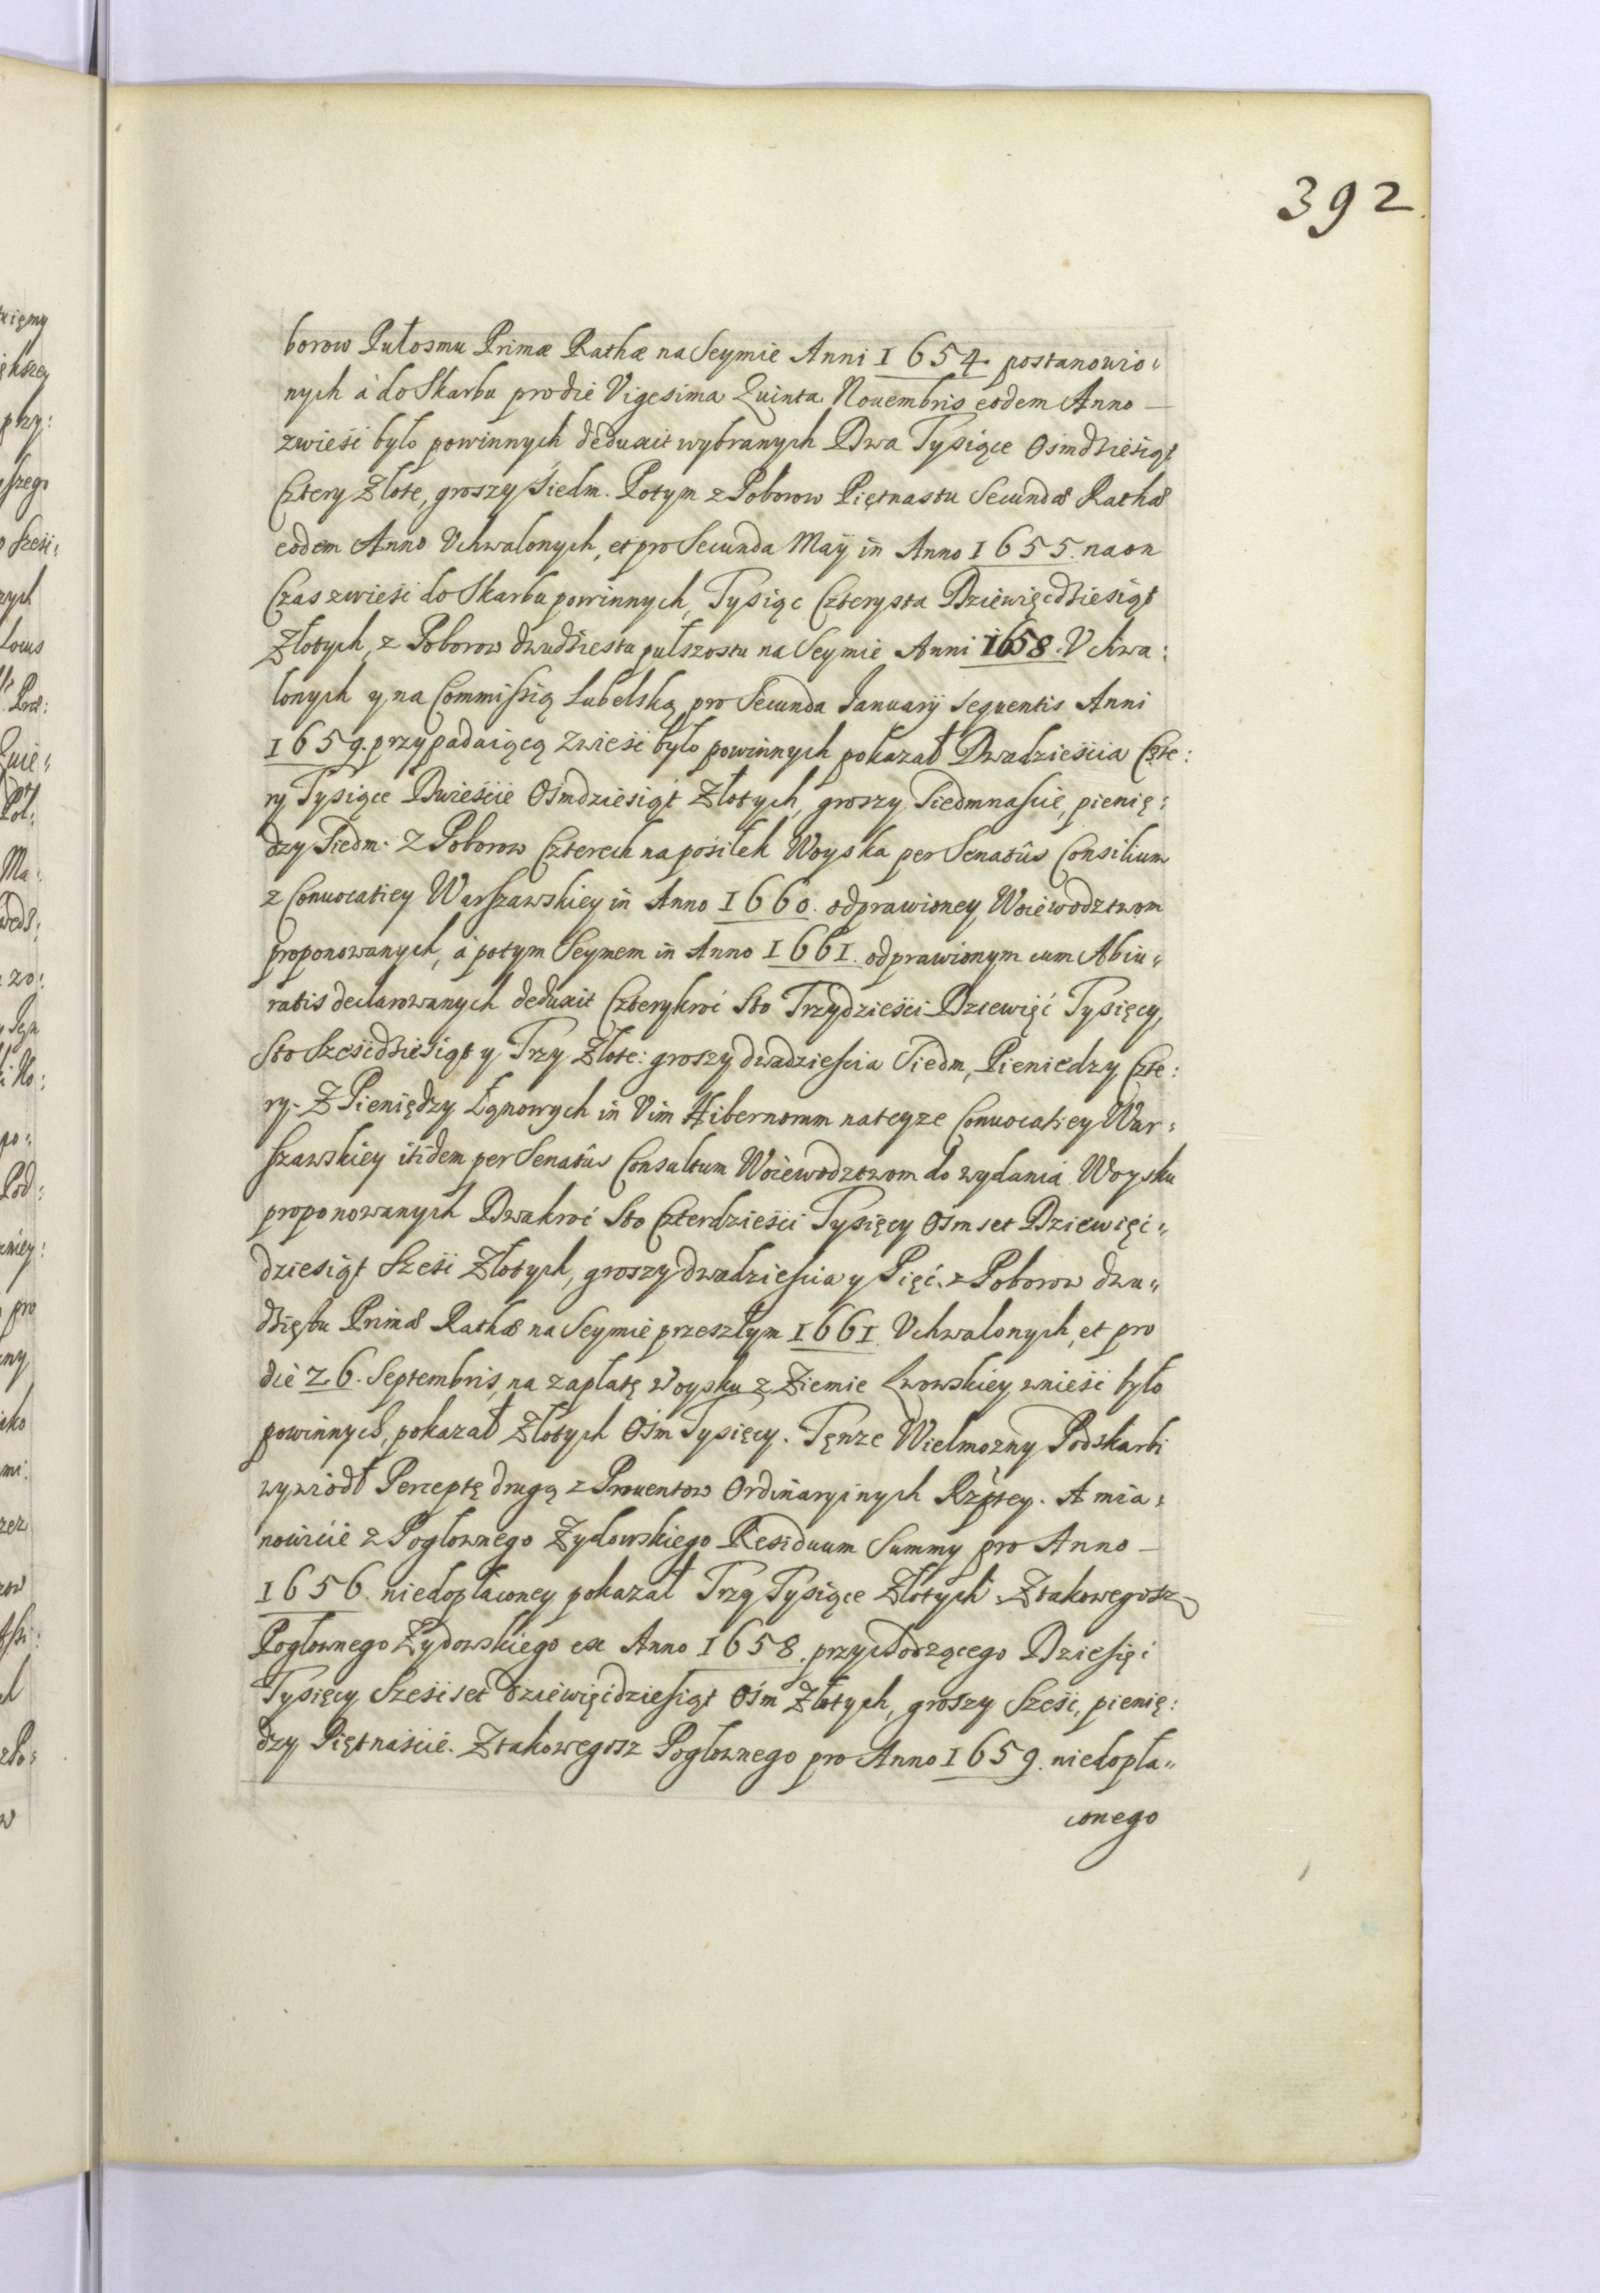 392
borow Pułosmu Primæ Rathæ na Seymie Anni 1654. postanowio„
nych á do Skarbu pro die Vigesima Quinta Nouembris eodem Anno —
zwieść było powinnych deduxit wybranych Dwa Tysiące Ośmdzieśiąt
Cztery Złote, groszy Siedm. Potym z Poborow Piętnastu Secundæ Rathæ
eodem Anno Vchwalonych, et pro Secunda Maÿ in Anno 1655. na on
Czas zwieść do Skarbu powinnych, Tysiąc Czterysta Dziewięcdzieśiąt
Złotych, z Poborow dwudziestu pułszostu na Seymie Anni 1658. Vchwa:
lonych y na Commissią Lubelską pro Secunda Januarÿ sequentis Anni
1659. przypadaiącą zwieść było powinnych pokazał Dwadzieścia Czte:
ry Tysiące Dwieście Ośmdziesiąt Złotych, groszy Siedmnaście, pienię:
dzy Siedm. Z Poborow Czterech na posiłek Woyska per Senatûs Consilium
z Conuocatiey Warszawskiey in Anno 1660. odprawioney Woiewodztwom
proponowanych, á potym Seymem in Anno 1661. odprawionym cum Abiu„
ratis declarowanych deduxit Czterykroć Sto Trzydzieści Dziewięć Tysięcy,
Sto Sześćdzieśiąt y Trzy Złote: groszy dwadzieścia Siedm, Pieniedzy Czte:
ry. Z Pieniędzy Łanowych in Vim Hibernorum na teyze Conuocatiey War„
szawskiey itidem per Senatûs Consultum Woiewodztwom do wydania Woysku
proponowanych Dwakroć Sto Czterdzieści Tysięcy Ośmset Dziewięć„
dziesiąt Sześć Złotych, groszy dwadzieścia y Pięć. z Poborow dwu„
dziestu Primæ Rathæ na Seymie przeszłym 1661. Vchwalonych, et pro
die 26. Septembris, na zapłatę Woysku z Ziemie Lwowskiey wnieść było
powinnych, pokazał Złotych Ośm Tysięcy. Tenze Wielmozny Podskarbi
wywiodł Perceptę drugą z Prouentow Ordinaryinych Rzptey. A mia„
nowicie z Pogłownego Zydowskiego Residuum Summy pro Anno —
1656. niedopłaconey pokazał Trzy Tysiące Złotych. Z takowegosz
Pogłownego Zydowskiego ex Anno 1658. przychodzącego Dziesięć
Tysięcy Sześćset dziewięćdziesiąt Ośm Złotych, groszy Sześć, pienię:
dzy Piętnaście. Z takowegosz Pogłownego pro Anno 1659. niedopła„
conego